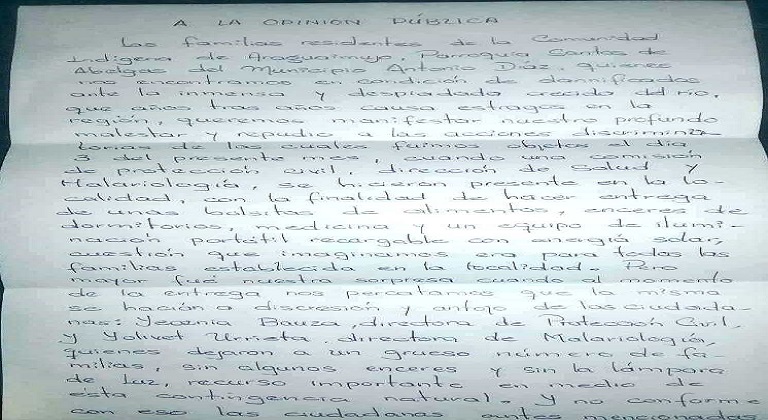 A LA OPINION PÚBLICA
Las familias residentes de la Comunidad
Indigena de Araguaimujo, Parroquia Santos de
Abelgas del Municipio Antonio Díaz, quienes
nos encontramos en condición de damnificados
ante la inmensa y despiadada crecida del río,
que años tras años causa estragos en la
región, queremos manifestar nuestro profundo
malestar y repudio a las acciones discrimina
torias de las cuales fuimos objetos el día
3 del presente mes, cuando una comisión
de protección civil, dirección de salud y
Malariología, se hicieron presente en la lo-
calidad, con la finalidad de hacer entrega
de unas bolsitas de alimentos, enceres de
dormitorios, medicina y un equipo de ilumi-
nación portátil recargable con energía solar,
cuestión que imaginamos era para todas las
familias establecida en la localidad. Pero
mayor fué nuestra sorpresa cuando al momento
de la entrega nos percatamos que la misma
se hacían a discresión y antojo de las ciudada-
nas: Yecznia Bauza, directora de Protección Civil,
y Yolivet Urrieta, directora de Malariología,
quienes dejaron a un grueso número de fa-
milias, sin algunos enceres y sin la lámpara
de luz, recurso importante en medio de
esta contingencia natural. Y no conforme
con eso las ciudadanas antes mencionadas